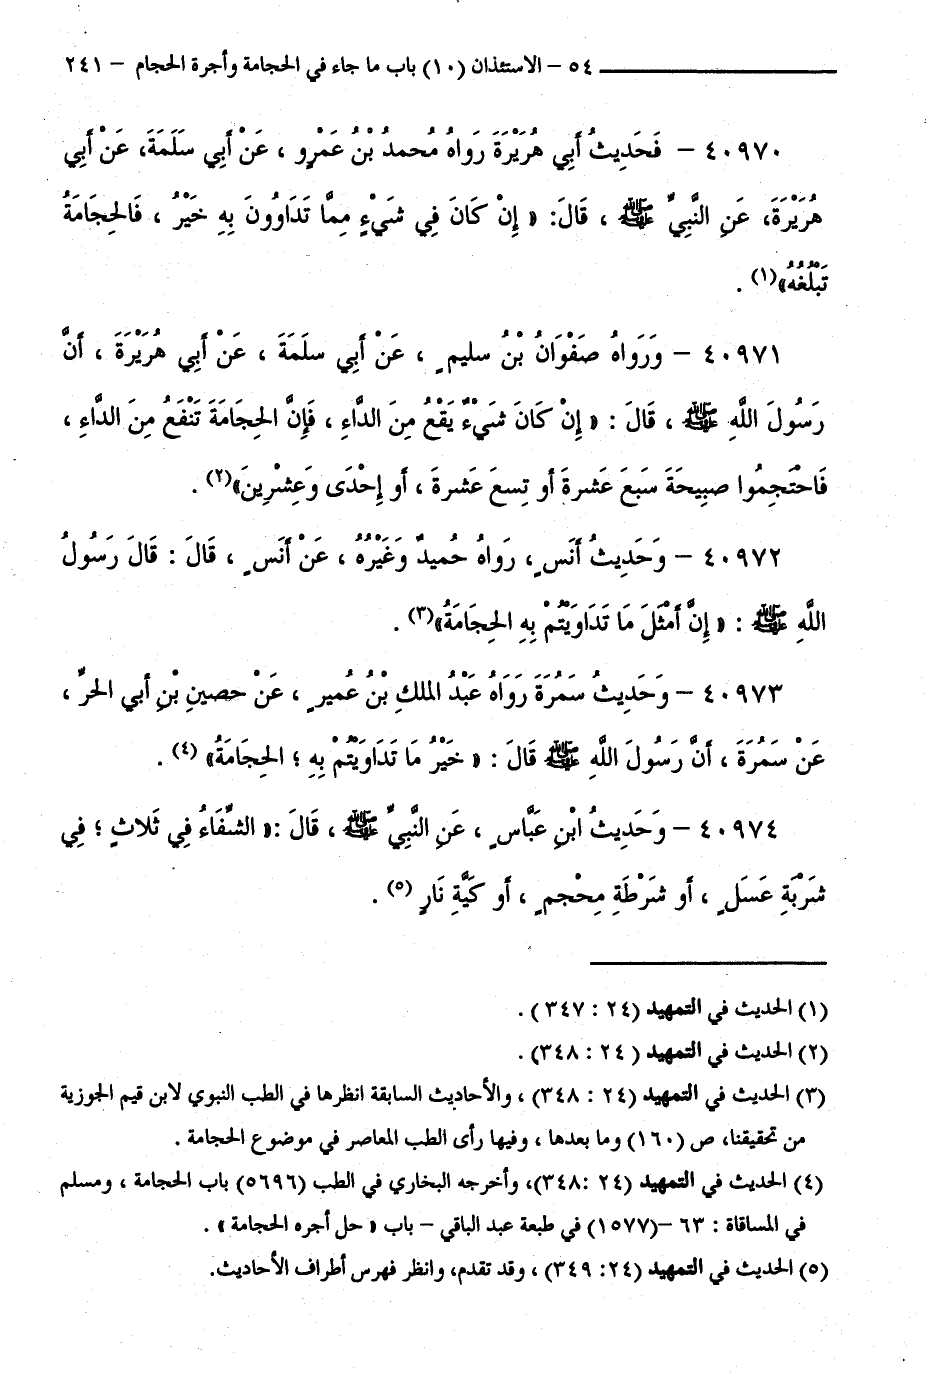 ٥٤ – الاستئذان (١٠) باب ما جاء في الحجامة وأجرة الحجام – ٢٤١
٤٠٩٧٠ – فَحَدِيثُ أَبِي هُرَيْرَةَ رَواهُ مُحمدُ بْنُ عَمْرٍو ، عَنْ أَبِي سَلَمَةَ، عَنْ أَبِي
هُرَيْرَةَ، عَنِ النَّبِيِّ ﷺ ، قَالَ: « إِنْ كَانَ فِي شَيْءٍ مِمَّا تَدَاوُونَ بِهِ خَيْرٌ ، فَالحِجَامَةُ
تَبْلُغُهُ»(١) .
٤٠٩٧١ – وَرَواهُ صَفْوَانُ بْنُ سليمٍ ، عَنْ أَبِي سلَمَةَ ، عَنْ أَبِي هُرَيْرَةَ ، أَنَّ
رَسُولَ اللَّهِ ﷺ ، قَالَ : « إِنْ كَانَ شَيْءٌ يَقْعُ مِنَ الدَّاءِ ، فَإِنَّ الحِجَامَةَ تَنْفَعُ مِنَ الدَّاءِ ،
فَاحْتَجِمُوا صبِيحَةَ سَبَعَ عَشرةَ أو تِسعَ عَشرةَ ، أو إِحْدَى وَعِشْرِينَ»(٢) .
٤٠٩٧٢ – وَحَدِيثُ أَنَسٍ ، رَواهُ حُميدٌ وَغَيْرُهُ ، عَنْ أَنَسٍ ، قَالَ : قَالَ رَسُولُ
اللَّهِ ﷺ : « إِنَّ أَمْثَلَ مَا تَدَاوَيْتُمْ بِهِ الحِجَامَةُ»(٣) .
٤٠٩٧٣ – وَحَدِيثُ سَمُرَةَ رَوَاهُ عَبْدُ الملكِ بْنُ عُميرٍ ، عَنْ حصينِ بْنِ أبي الحرِّ ،
عَنْ سَمُرَةَ ، أَنَّ رَسُولَ اللَّهِ ﷺ قَالَ : « خَيْرُ مَا تَدَاوَيْتُمْ بِهِ ؛ الحِجَامَةُ» (٤) .
٤٠٩٧٤ – وَحَدِيثُ ابْنِ عَبَّاسٍ ، عَنِ النَّبِيِّ ﷺ ، قَالَ :« الشِّفَاءُ فِي ثَلاثٍ ؛ فِي
شَرْبَةِ عَسَلٍ ، أو شرْطَةِ مِحْجمٍ ، أو كَيَّةِ نَارٍ (٥) .
(١) الحديث في التمهيد (٢٤ : ٣٤٧) .
(٢) الحديث في التمهيد ( ٢٤ : ٣٤٨) .
(٣) الحديث في التمهيد (٢٤ : ٣٤٨) ، والأحاديث السابقة انظرها في الطب النبوي لابن قيم الجوزية
من تحقيقنا، ص (١٦٠) وما بعدها ، وفيها رأى الطب المعاصر في موضوع الحجامة .
(٤) الحديث في التمهيد (٢٤ :٣٤٨)، وأخرجه البخاري في الطب (٥٦٩٦) باب الحجامة ، ومسلم
في المساقاة : ٦٣ –(١٥٧٧) في طبعة عبد الباقي – باب « حل أجره الحجامة » .
(٥) الحديث في التمهيد (٢٤: ٣٤٩) ، وقد تقدم، وانظر فهرس أطراف الأحاديث.